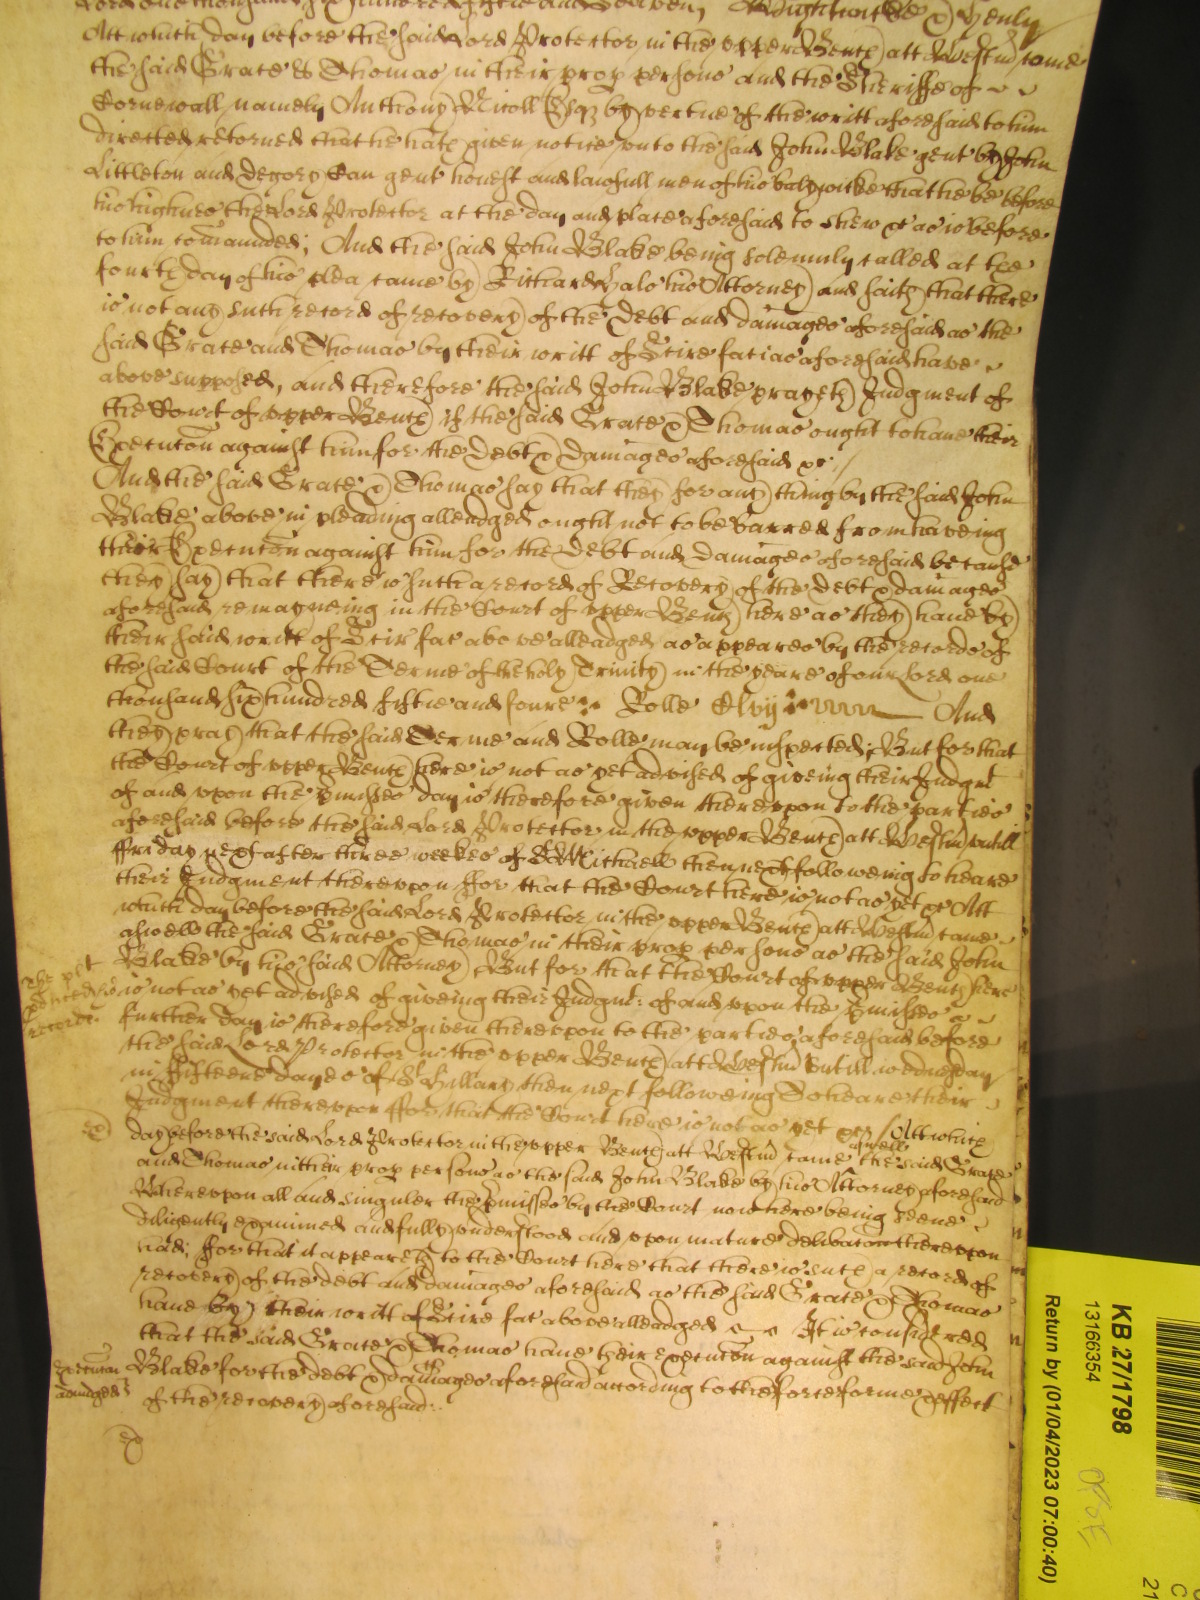 Lord one thousand six hundred fiftie and seaven,
Att which day before the said Lord Protector in the upper Bench att Westm came
the said Grace & Thomas in their prop persons and the Sheriffe of
Cornewall namely Anthony Nicoll Esq by vertue of the writt aforesaid to him
directed retorned that he hath given notice unto the said John Blake gent by John
Littleton and Degory gent honest and lawfull men of his balywicke that he be before
his highnes the Lord Protector at the day and place aforesaid to shew &c as is before
to him comaunded; And the said John Blake being solemnly called at the
fourth day of his plea came by Richard his Attorney and saith that there
is not any such record of recovery of the debt and damages aforesaid as the
said Grace and Thomas by their writt of Scire facias aforesaid have
above supposed, and therefore the said John Blake prayeth Judgment of
the Court of upper Bench if the said Grace & Thomas ought to have their
Execucon against him for the debt & damages aforesaid &c //
And the said Grace & Thomas say that they for any thing by the said John
Blake above in pleading alleadged ought not to be barred from haveing
their Execucon against him for the debt and damages aforesaid because
they say that there is such a record of Recovery of the debt & damages
aforesaid remayneing in the Court of upper Bench here as they have by
their said writt of Scir fac above alleadged as appeares by the records of
the said Court of the Terme of the holy Trinity in the yeare of our Lord one
thousand six hundred fiftie and foure Rolle And
they pray that the said Terme and Rolle may be inspected; But for that
the Court of upper Bench here is not as yet advised of giveing their Judgmt
of and upon the pmisses day is therefore given thereupon to the parties
aforesaid before the said Lord Protector in the upper Bench att Westm untill
ffriday next after three weekes of St Michaell then next followeing to heare
their Judgment thereupon ffor that the Court here is not as yet &c Att
which day before the said Lord Protector in the upper Bench att Westm came
aswell the said Grace & Thomas in their prop persons as the said John
Blake by his said Attorney, But for that the Court of upper Bench here
The plt
produced the
record
is not as yet advised of giveing their Judgmt: of and upon the pmisses a
further day is therefore given thereupon to the parties aforesaid before
the said Lord Protector in the upper Bench att Westm untill wednesday
in fifteene dayes of St Hillary then next followeing To heare their
Judgment thereupon ffor that the Court here is not as yet &c / Att which
day before the said Lord Protector in the upper Bench att Westm came aswell the said Grace
and Thomas in their prop persons as the said John Blake by his Attorney aforesaid
Whereupon all and singuler the pmisses by the Court now here being seene
diligently examined and fully understood and upon mature delibacon thereupon
had; ffor that it appeareth to the Court here that there is such a record of
recovery of the debt and damages aforesaid as the said Grace & Thomas
have by their writt of Scire fac above alleadged It is considered
that the said Grace & Thomas have their execucon against the said John
Execucon
adiudged
Blake for the debt & damages aforesaid according to the force forme & effect
of the recovery aforesaid.
KB 27/1798
13166354
Return by (01/04/2023 07:00:40)